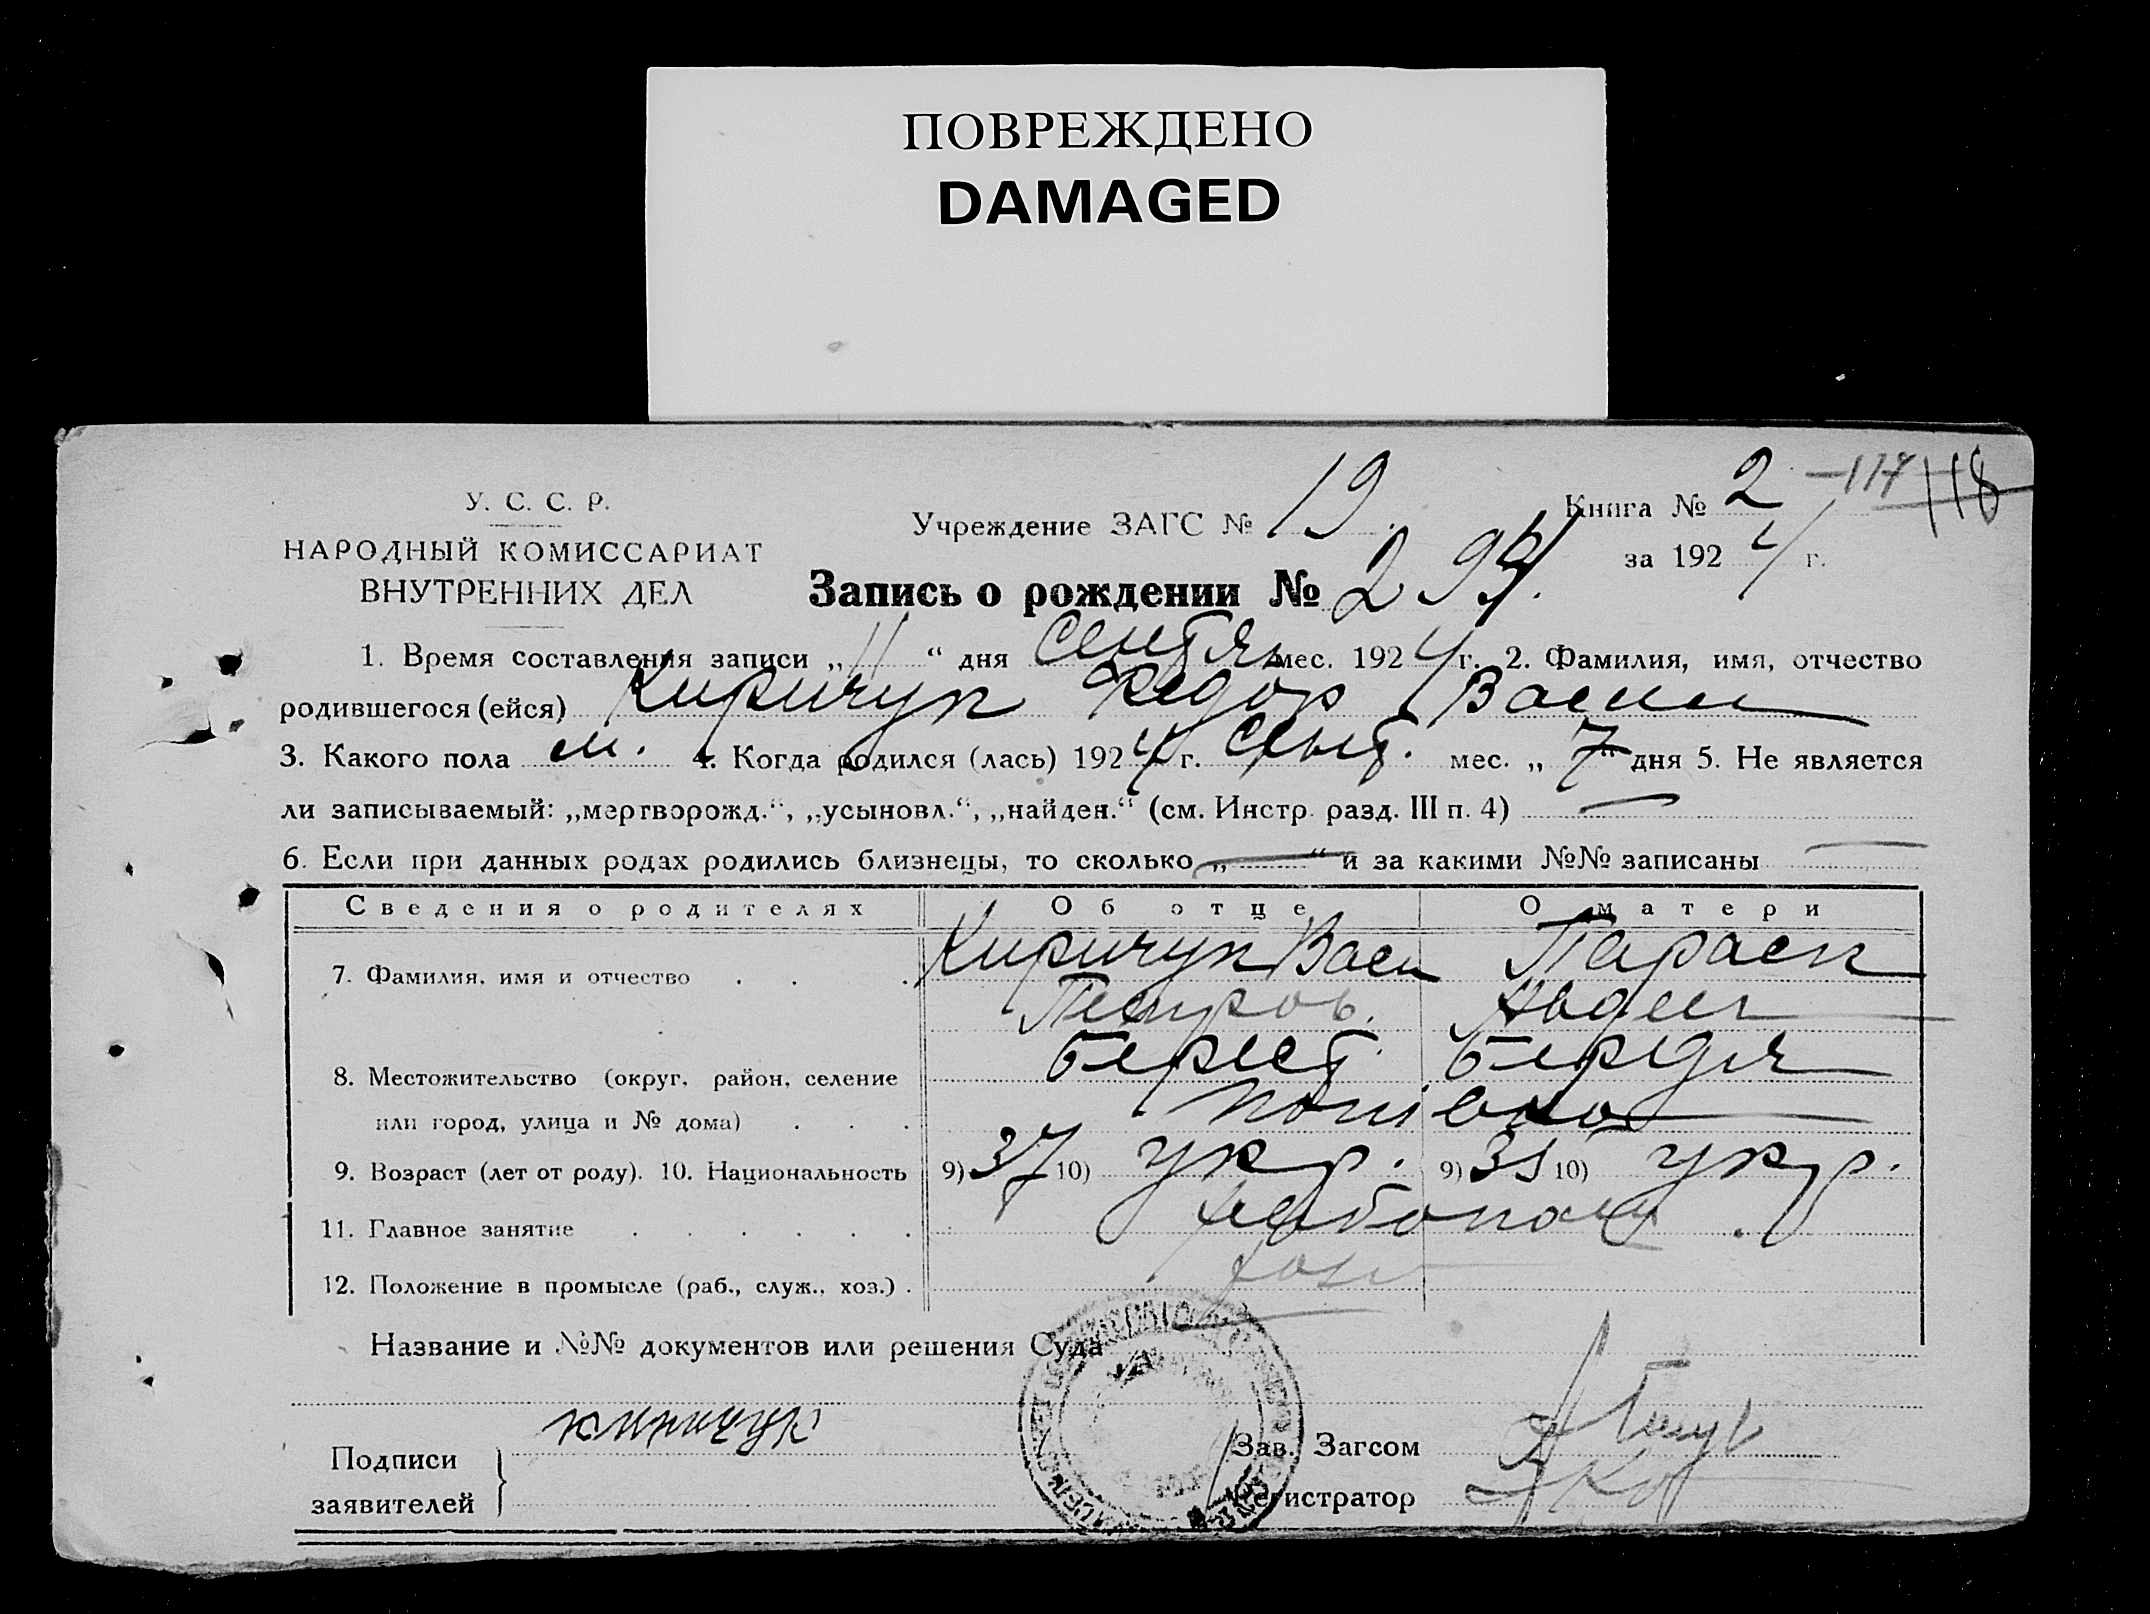 ПОВРЕЖДЕНО
DAMAGED
118
У. С. С. Р.
НАРОДНЫЙ КОМИССАРИАТ
ВНУТРЕННИХ ДЕЛ
Учреждение ЗАГС № 19
Книга № 2
за 1924 г.
Запись о рождении № 294
1. Время составления записи „11“ дня Сентбя мес. 1924 г. 2. Фамилия, имя, отчество
родившегося (ейся) Киричук Федор Васил
3. Какого пола м. 4. Когда родился (лась) 1924 г. Сент. мес. „7“ дня 5. Не является
ли записываемый: „мертворожд.“, „усыновл.“, „найден.“ (см. Инстр. разд. III п. 4) —
6. Если при данных родах родились близнецы, то сколько „—“ и за какими №№ записаны —
Сведения о родителях Об отце О матери
7. Фамилия, имя и отчество . . . Киричук Васи Параск
Петров. Авдеи
8. Местожительство (округ, район, селение Берест. Бердя
или город, улица и № дома) . . .
9. Возраст (лет от роду). 10. Национальность 9) 37 10) укр. 9) 31 10) укр.
11. Главное занятие . . . . . . хлебопаш
12. Положение в промысле (раб., служ., хоз.) . хозя
Название и №№ документов или решения Суда
Подписи
заявителей
киричук
Зав. Загсом
Регистратор